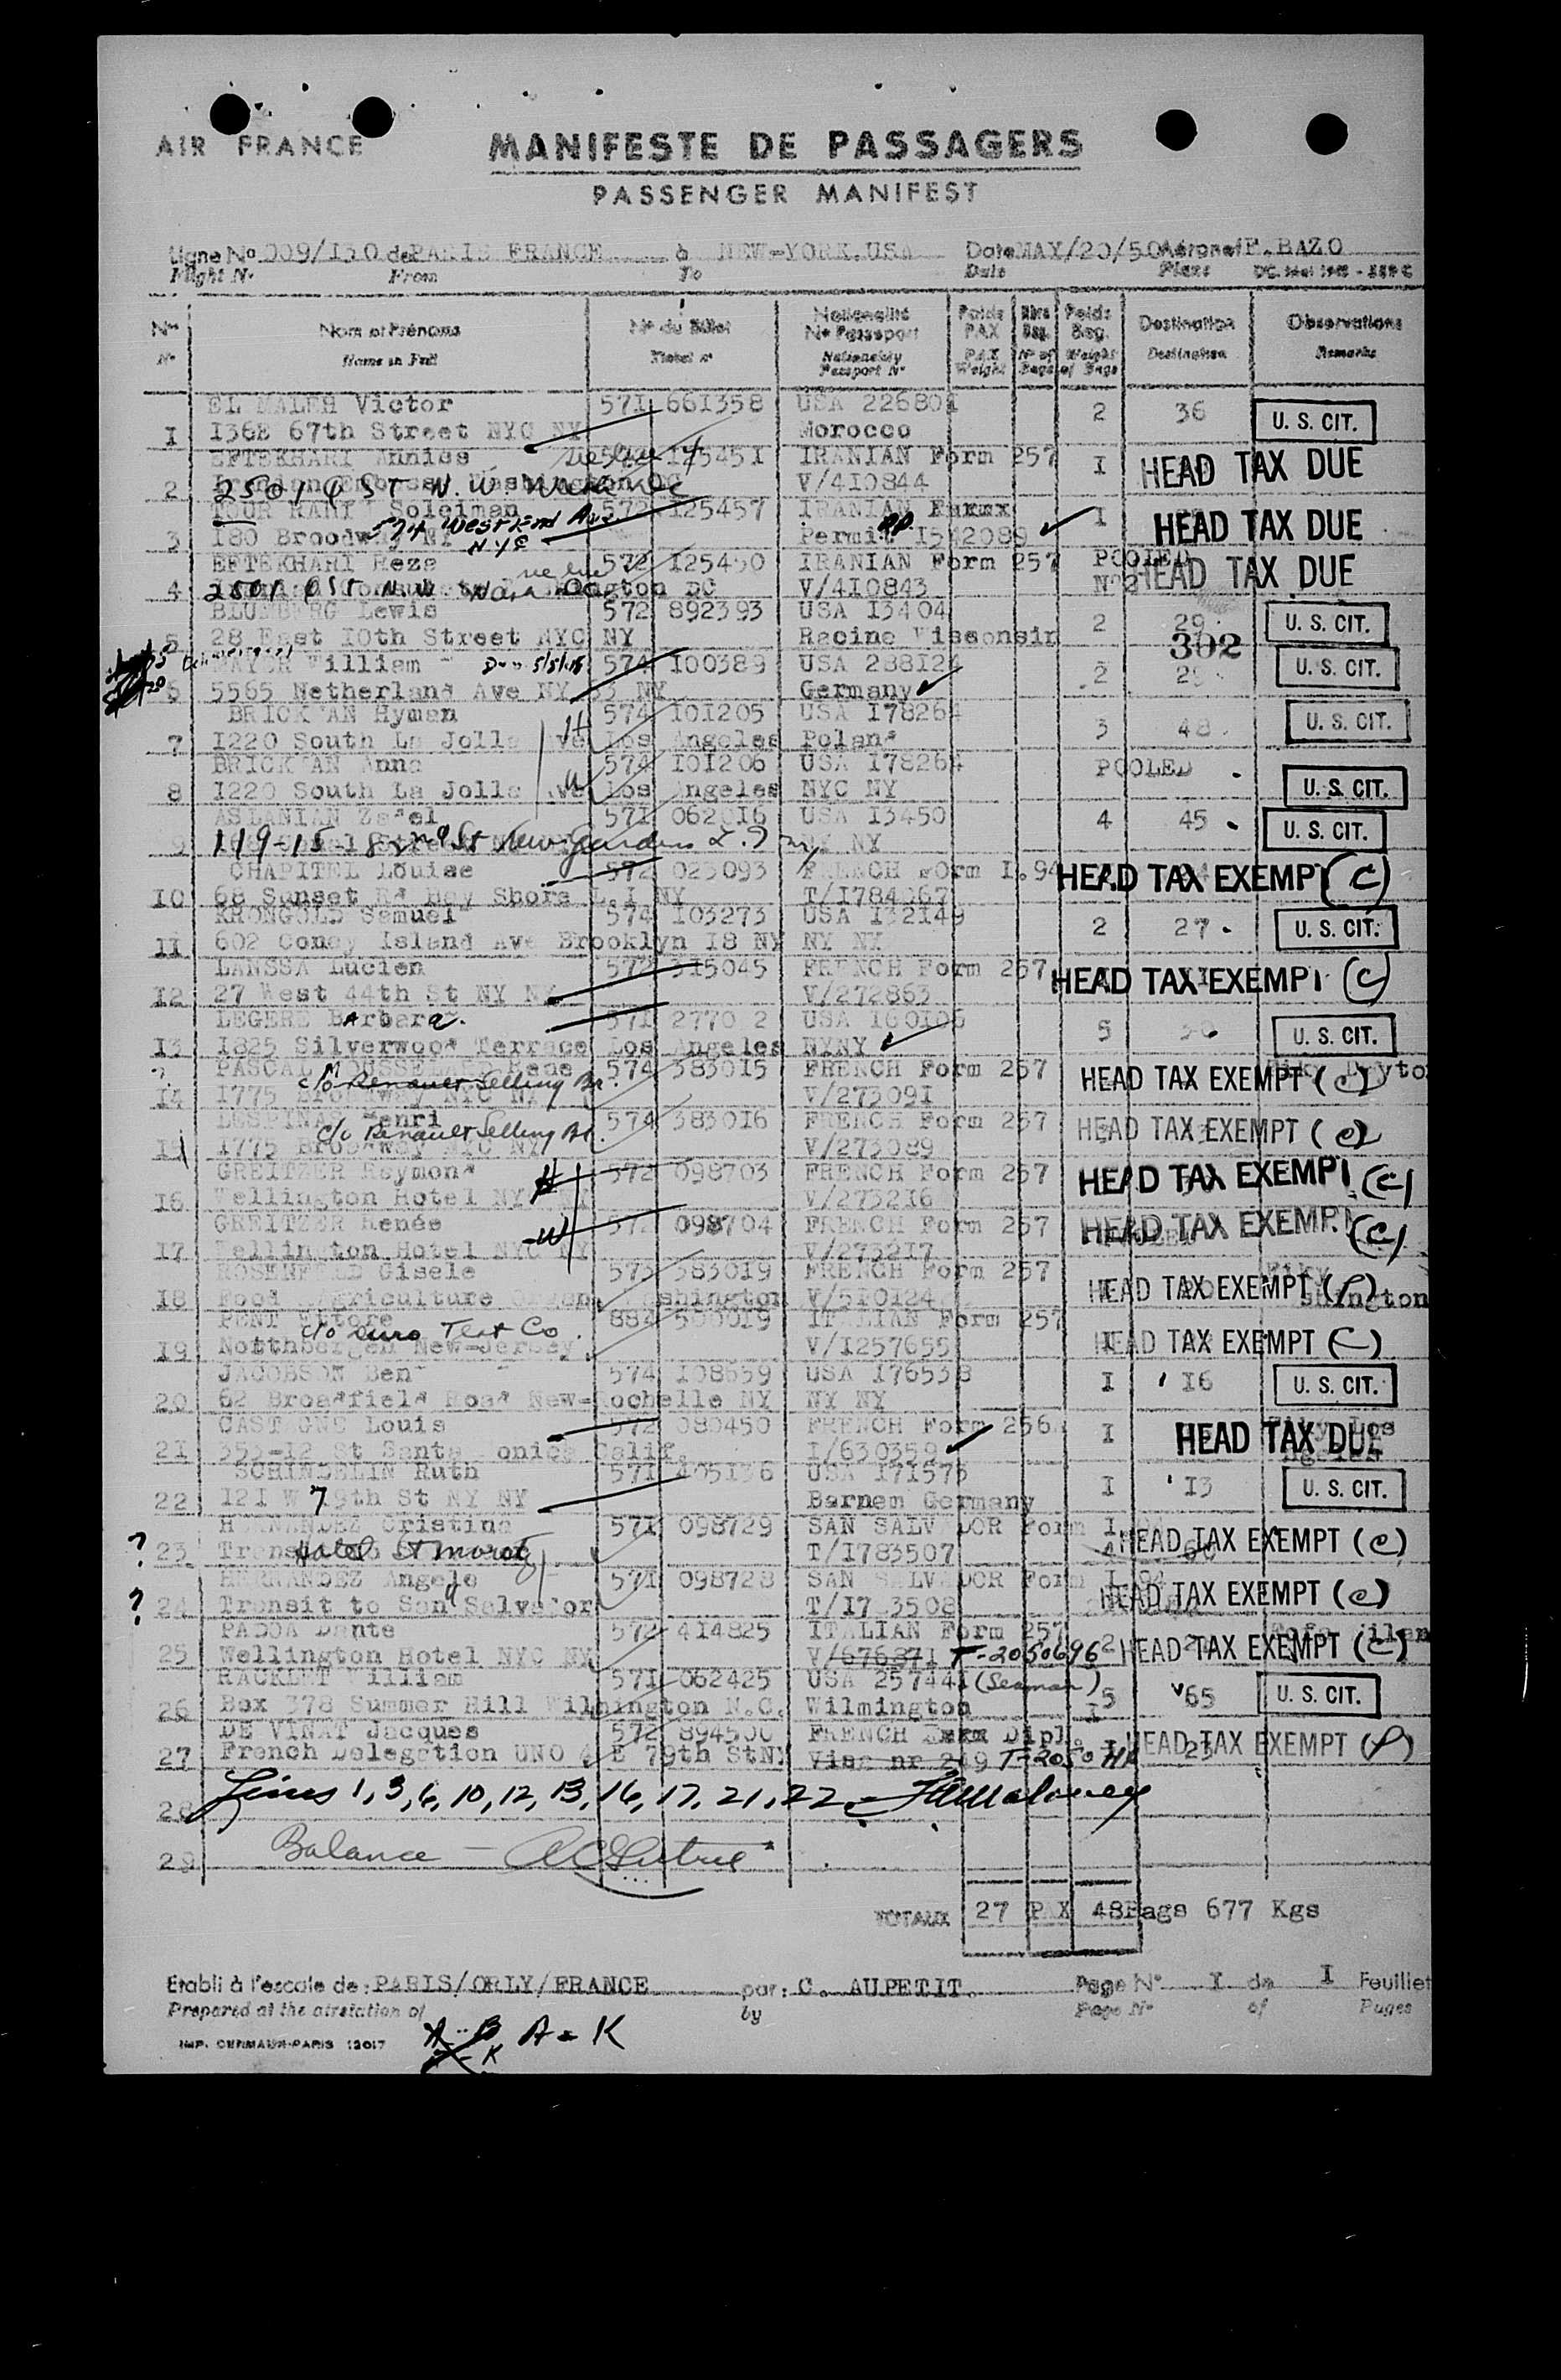 AIR FRANCE
MANIFESTE DE PASSAGERS
PASSENGER MANIFEST
Ligne No 009/130 de PARIS FRANCE à NEW-YORK.USA Date MAY/20/50 Aéronef F.BAZO
Flight No From To Date Plane
Nos Nom et Prénoms No du Billet Nationalité No Passeport Poids PAX Nbre Bag. Poids Bag. Destination Observations
No Name in Full Ticket no Nationality Passport No PAX Weight No of Bags Weight of Bags Destination Remarks
EL MALEH Victor 571 661358 USA 226801 2 36 U. S. CIT.
1 I36E 67th Street NYC NY Morocco
EFTEKHARI Annies 572 125451 IRANIAN Form 257 I HEAD TAX DUE
2 2501 Q ST N.W. Wash DC V/410844
Soleiman 572 125457 IRANIAN I HEAD TAX DUE
3 I80 Broodway NY 574 West End Ave. N.Y.C Permit I542089
EFTEKHARI Reza 572 125450 IRANIAN Form 257 POOLED HEAD TAX DUE
4 2501 Q ST N.W. Wash DC V/410843 No2
BLUMBERG Lewis 572 892393 USA I3404 2 29 U. S. CIT.
5 28 East I0th Street NYC NY Racine Wisconsin 302
MAYER William 574 100389 USA 288124 2 29 U. S. CIT.
6 5565 Netherland Ave NY 63 NY Germany
BRICKMAN Hyman H 574 101205 USA I78264 3 48 U. S. CIT.
7 I220 South La Jolla Ave Los Angeles Poland
BRICKMAN Anna W 574 101206 USA I78264 POOLED
8 I220 South La Jolla Ave Los Angeles NYC NY U. S. CIT.
ASLANIAN Zadel 571 062016 USA I3450 4 45 U. S. CIT.
9 119-15- 82nd St Kew Gardens L.I NY NY
CHAPITEL Louise 572 023093 FRENCH Form I.94 HEAD TAX EXEMPT (C)
10 68 Sunset Rd Bay Shore L.I NY T/I784067
KRONGOLD Samuel 574 103273 USA I32149 2 27 U. S. CIT.
11 602 Coney Island Ave Brooklyn I8 NY NY NY
LANSSA Lucien 572 315045 FRENCH Form 257 HEAD TAX EXEMPT (C)
12 27 West 44th St NY NY V/272863
LEGERE Barbara 571 2770 2 USA I60106 5 36 U. S. CIT.
13 I825 Silverwood Terrace Los Angeles NYNY
PASCAL Rene 574 383015 FRENCH Form 257 HEAD TAX EXEMPT (C)
14 I775 Broadway NYC NY c/o Renault Selling Br. V/273091
Henri 574 383016 FRENCH Form 257 HEAD TAX EXEMPT (C)
15 I775 Broadway NYC NY c/o Renault Selling Br. V/273089
GREITZER Raymond H 572 098703 FRENCH Form 257 HEAD TAX EXEMPT (C)
16 Wellington Hotel NYC NY V/273216
GREITZER Renée W 572 098704 FRENCH Form 257 HEAD TAX EXEMPT (C)
17 Wellington Hotel NYC NY V/273217
ROSENFELD Gisele 573 383019 FRENCH Form 257 HEAD TAX EXEMPT (P)
18 Food Agriculture Washington V/510124
PENT Ettore 884 500019 ITALIAN Form 257 HEAD TAX EXEMPT (C)
19 Northbergen New-Jersey c/o Text Co. V/I257655
JACOBSON Ben 574 108659 USA I76538 I I6 U. S. CIT.
20 62 Broadfield Road New-Rochelle NY NY NY
Louis 572 080450 FRENCH Form 256 I HEAD TAX DUE
21 353-12 St Santa Monica Calif. I/630359
SCHINDELIN Ruth 571 405136 USA I71575 I I3 U. S. CIT.
22 I2I W 79th St NY NY Barnem Germany
HERNANDEZ Cristina 571 098729 SAN SALVADOR Form I.94 HEAD TAX EXEMPT (C)
? 23 Hotel St Moritz T/I783507
HERNANDEZ Angela 571 098728 SAN SALVADOR Form I.94 HEAD TAX EXEMPT (C)
? 24 Transit to San Salvador T/I7 3508
PADOA Dante 572 414825 ITALIAN Form 257 2 HEAD TAX EXEMPT (C)
25 Wellington Hotel NYC NY V/676871 T-2050696
RACKLEY William 571 062425 USA 257441 (Seaman) 5 65 U. S. CIT.
26 Box 378 Summer Hill Wilmington N.C. Wilmington
DE VINAT Jacques 572 894500 FRENCH Dipl. I 23 HEAD TAX EXEMPT (P)
27 French Delegation UNO 4 E 79th StNY Visa nr 249
28 Lines 1, 3, 6, 10, 12, 13, 16, 17, 21, 22
29 Balance —
TOTAUX 27 PAX 48Bags 677 Kgs
Etabli à l'escale de: PARIS/ORLY/FRANCE par: C. AUPETIT. Page No I de I Feuillet
Prepared at the airstation of by Page No of Pages
IMP. CERMAUX-PARIS 12017 A = K